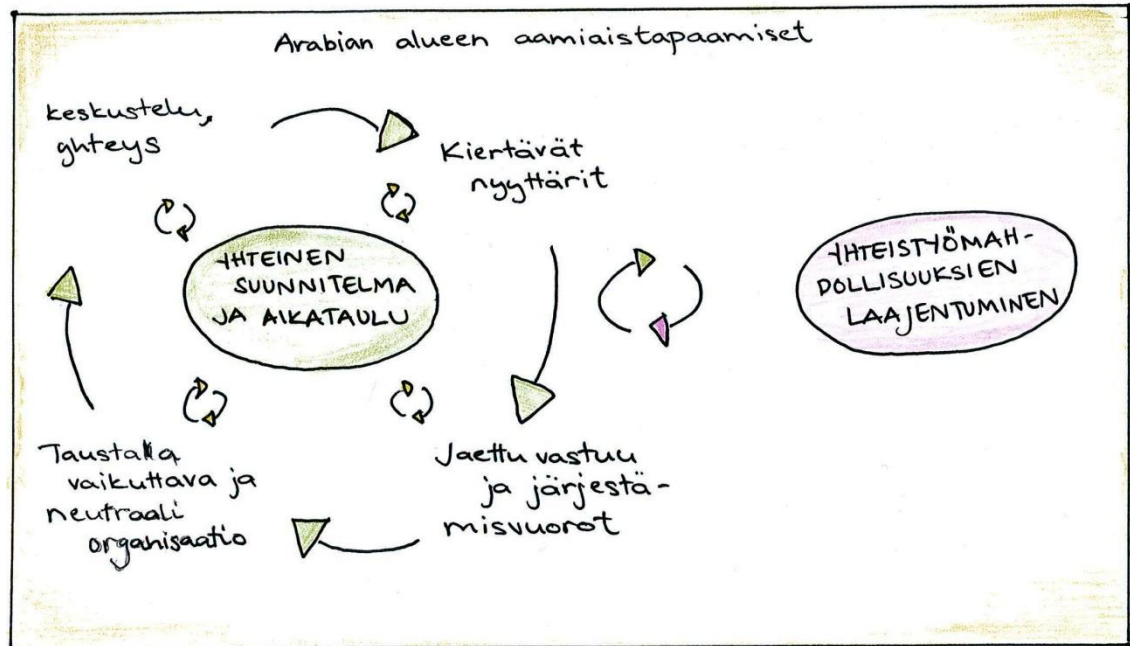 Arabian alueen aamiaistapaamiset
keskustelu,
yhteys
Kiertävät
nyyttärit
YHTEINEN
SUUNNITELMA
JA AIKATAULU
YHTEISTYÖMAH-
DOLLISUUKSIEN
LAAJENTUMINEN
Taustalla
vaikuttava ja
neutraali
organisaatio
Jaettu vastuu
ja järjestä-
misvuorot